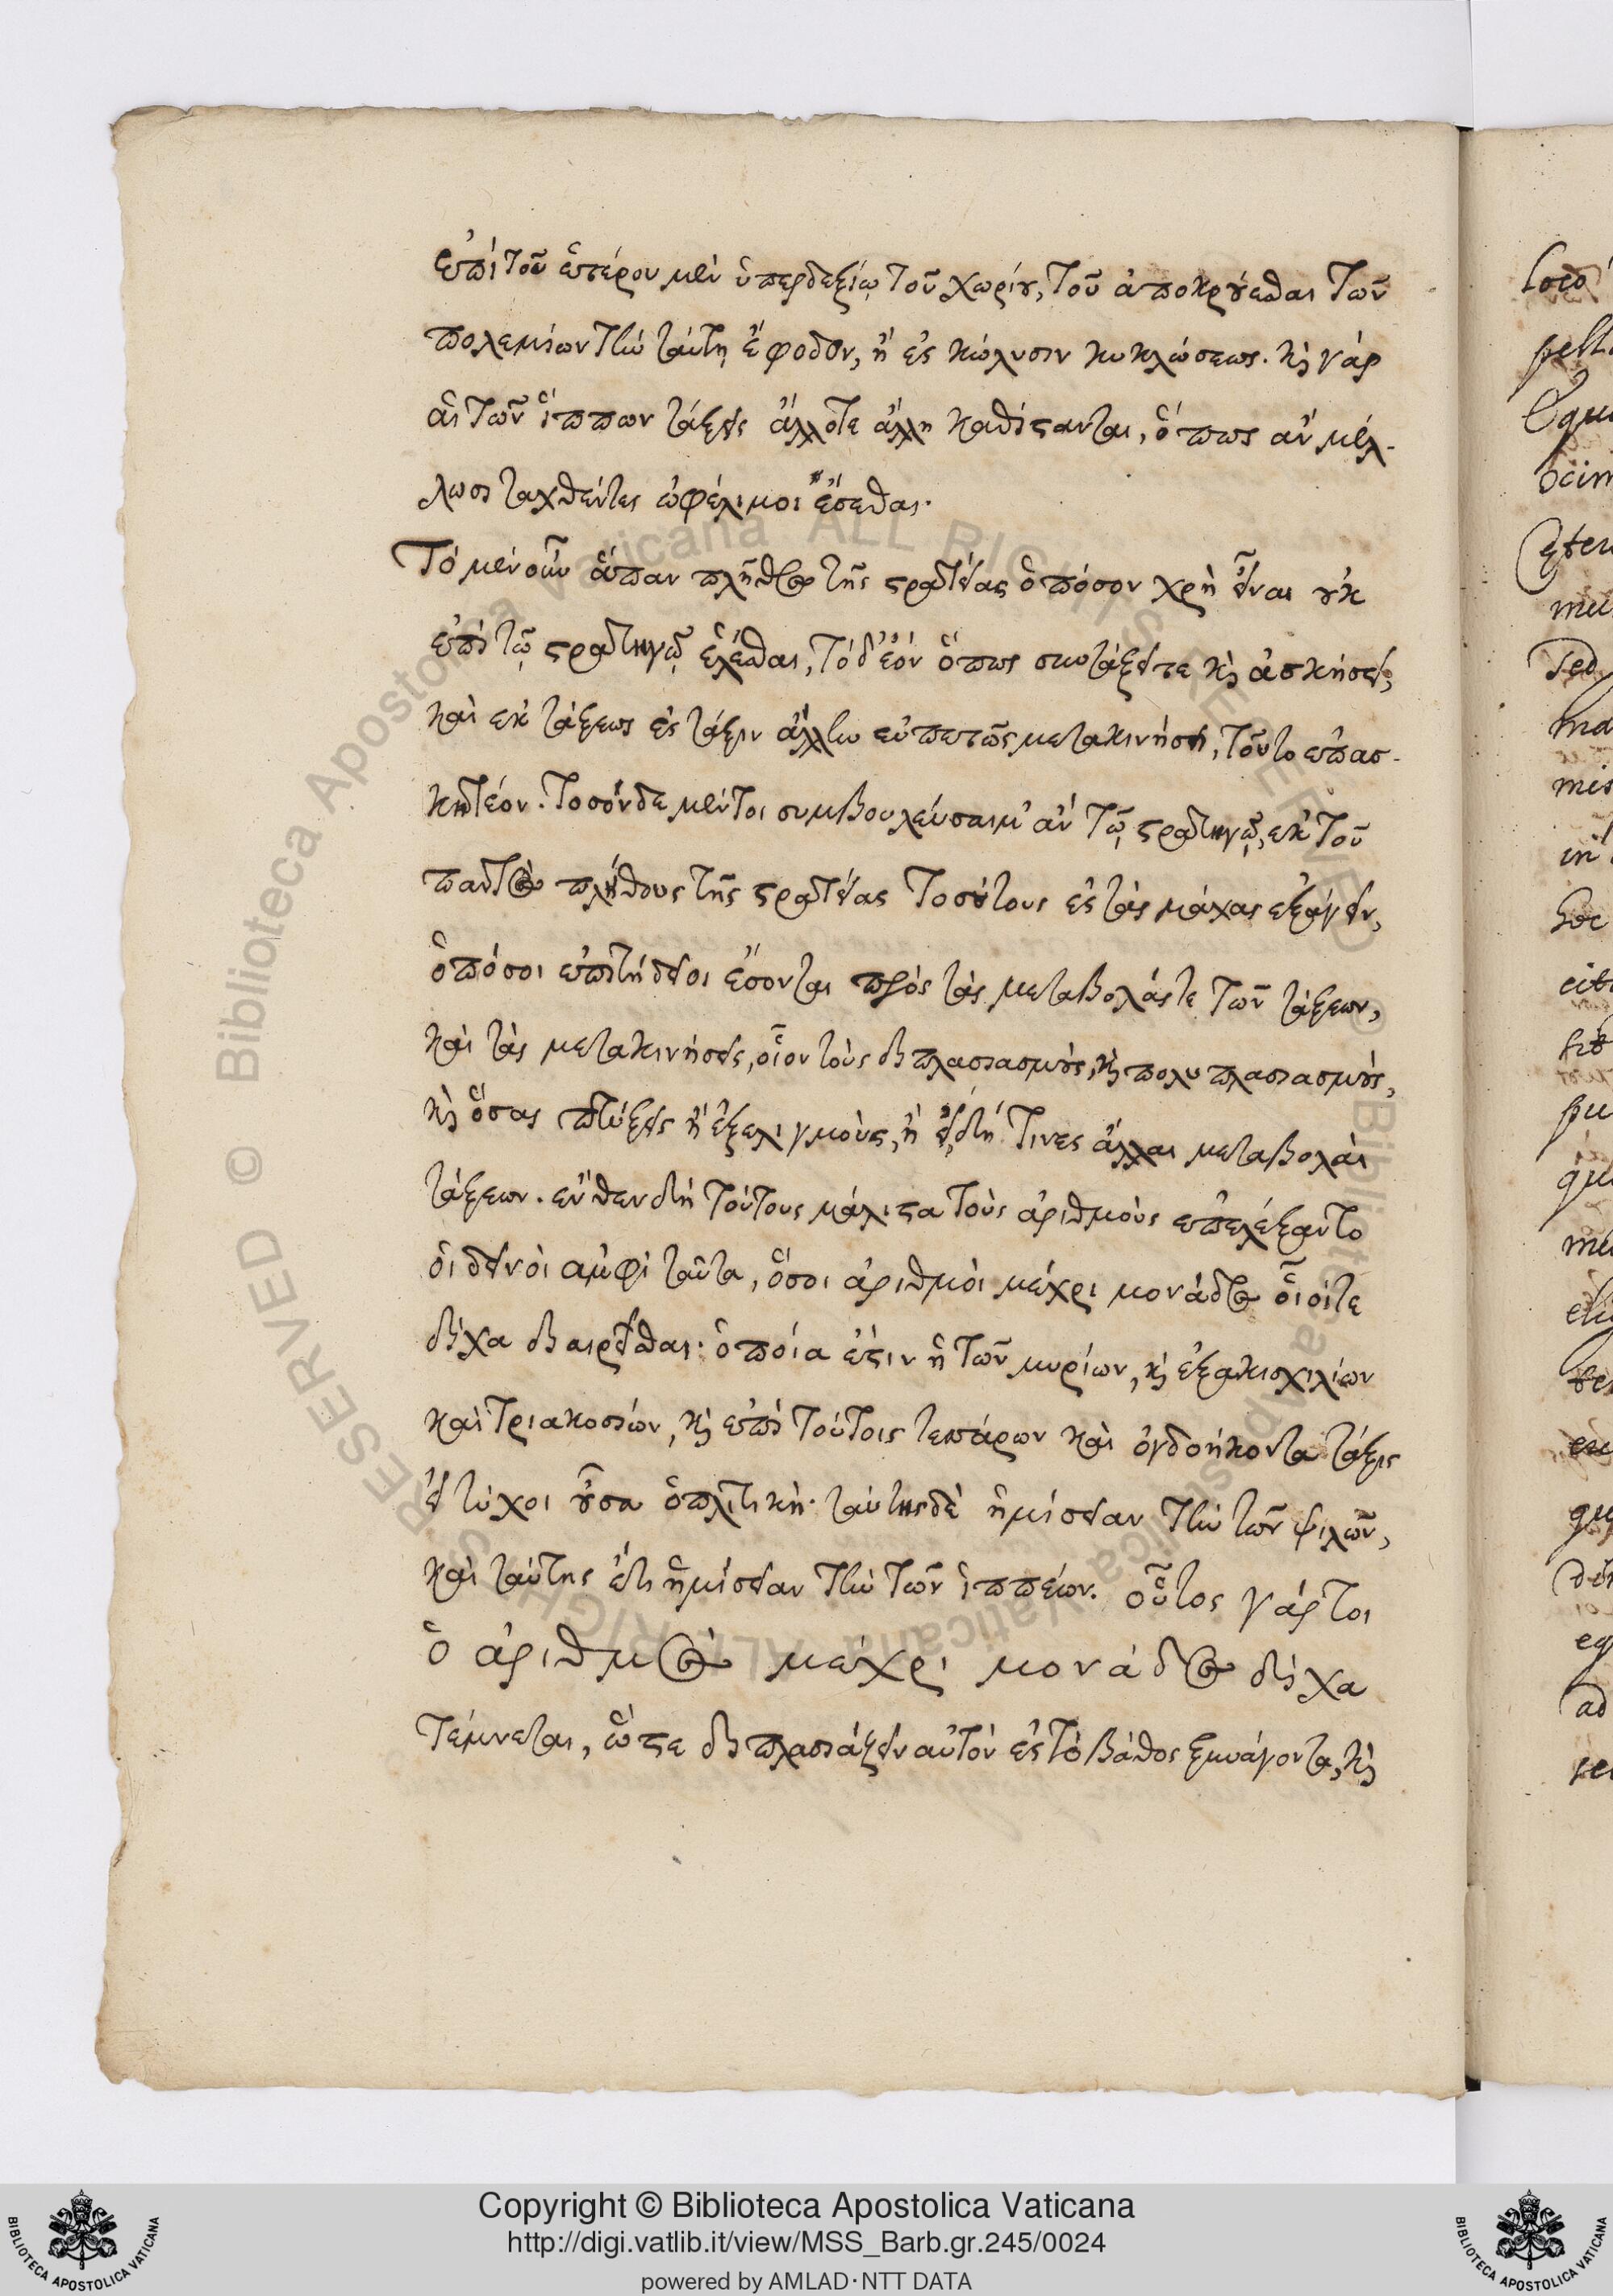 ἐπὶ τοῦ ἑτέρου μὲν ὑπερδεξίῳ τοῦ χωρίου, τοῦ ἀποκρούεσθαι τῶν
πολεμίων τὴν ταύτῃ ἔφοδον, ἢ ἐς κώλυσιν κυκλώσεως. καὶ γὰρ
αἱ τῶν ἵππων τάξεις ἄλλοτε ἄλλῃ καθίστανται, ὅπως ἂν μέλ-
λωσι ταχθέντες ὠφέλιμοι ἔσεσθαι.
Τὸ μὲν οὖν ἅπαν πλῆθος τῆς στρατείας ὁπόσον χρὴ εἶναι οὐκ
ἐπὶ τῷ στρατηγῷ ἑλέσθαι, τὸ δέον ὅπως συντάξει τε καὶ ἀσκήσει,
καὶ ἐκ τάξεως ἐς τάξιν ἄλλην εὐπετῶς μετακινήσει, τοῦτο ἐπασ-
κητέον. τοσόνδε μέντοι συμβουλεύσαιμ' ἂν τῷ στρατηγῷ, ἐκ τοῦ
παντὸς πλήθους τῆς στρατείας τοσούτους ἐς τὰς μάχας ἐξάγειν,
ὁπόσοι ἐπιτήδειοι ἔσονται πρὸς τὰς μεταβολάς τε τῶν τάξεων,
καὶ τὰς μετακινήσεις, οἷον τοὺς διπλασιασμούς, καὶ πολυπλασιασμούς,
καὶ ὅσας πτύξεις ἢ ἐξελιγμοὺς, ἢ εἰ δή τινες ἄλλαι μεταβολαὶ
τάξεων. ἔνθεν δὴ τούτους μάλιστα τοὺς ἀριθμοὺς ἐπελέξαντο
οἱ δεινοὶ ἀμφὶ ταῦτα, ὅσοι ἀριθμοὶ μέχρι μονάδος οἷοί τε
δίχα διαιρεῖσθαι· ὁποία ἐστὶν ἡ τῶν μυρίων, καὶ ἑξακισχιλίων
καὶ τριακοσίων, καὶ ἐπὶ τούτοις τεσσάρων καὶ ὀγδοήκοντα τάξις
εἰ τύχοι οὖσα ὁπλιτική· ταύτης δὲ ἡμίσειαν τὴν τῶν ψιλῶν,
καὶ ταύτης ἔτι ἡμίσειαν τὴν τῶν ἱππέων. οὗτος γάρ τοι
ὁ ἀριθμὸς μέχρι μονάδος δίχα
τέμνεται, ὥστε διπλασιάζειν αὐτὸν ἐς τὸ βάθος ξυνάγοντα, καὶ
Copyright © Biblioteca Apostolica Vaticana
http://digi.vatlib.it/view/MSS_Barb.gr.245/0024
powered by AMLAD·NTT DATA